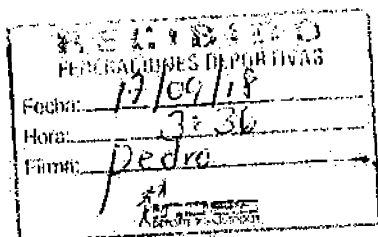 RECIBIDO
FEDERACIONES DEPORTIVAS
Fecha: 17/09/18
Hora: 3:36
Firma: Pedro